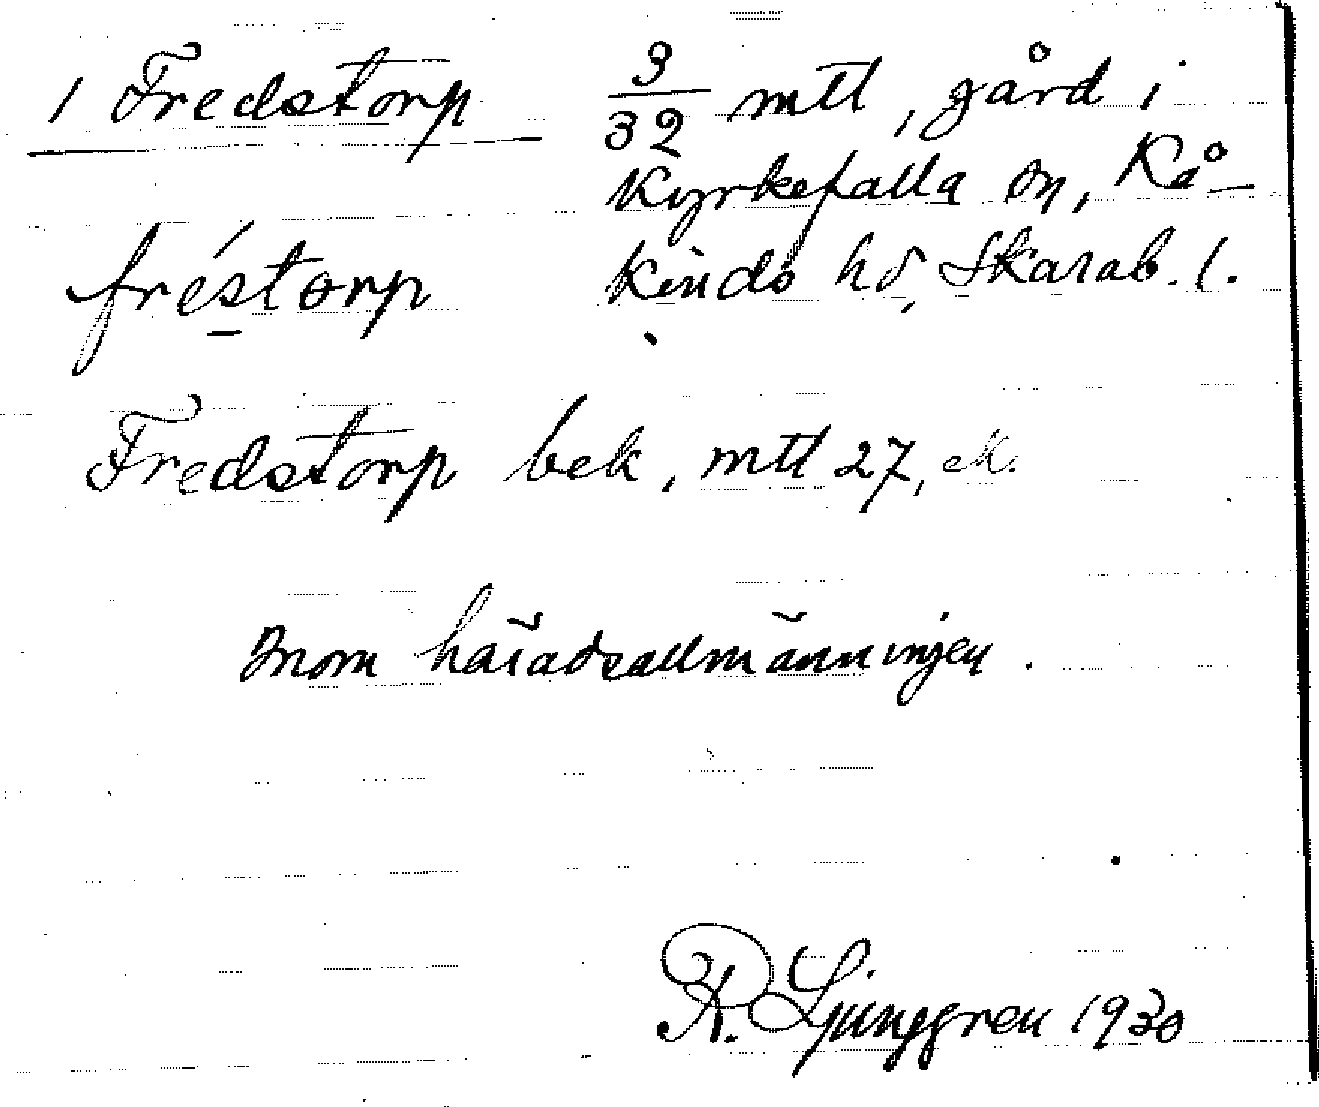 1 Fredstorp 3/32 mtl, gård i
Kyrkefalla sn, Kå-
fréstorp kinds hd, Skarab. l.
Fredstorp bek, mtl 27, ek.
Inom häradsallmänningen.
R. Ljunggren 1930